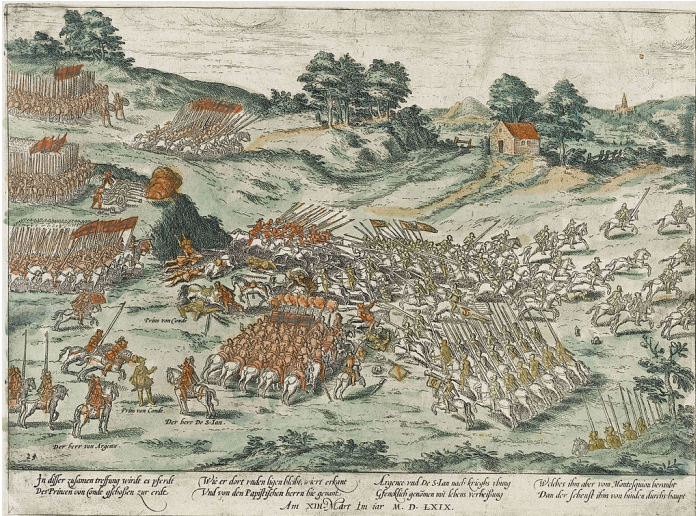 Prinz von Conde
Prinz von Conde
Der herr De S. Ian.
Der herr von Argence
In disser zusamen treffung wirdt es pferdt
Des Princen von Conde geschossen zur erdt.
Wie er dort unden ligen bleibt, wiert erkant
Und von den Papistischen herrn hie genant.
Argence und De S. Ian nach kriegs ubung
Gfencklich genomen mit lebens verheissung
Welches ihn aber vom Montesquiou beraubt
Dan der schenst ihm von hinden durchs haupt
Am XIII. Mart Im iar M. D. LXIX.